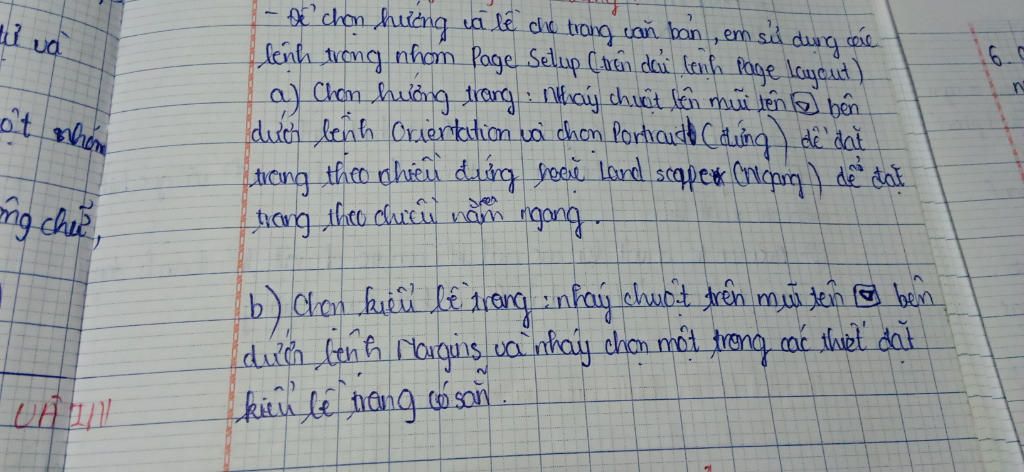 - Để chọn hướng và lề cho trang văn bản, em sử dụng các
lệnh trong nhóm Page Setup (trên dải lệnh Page Layout)
a) Chọn hướng trang: Nháy chuột lên mũi tên bên
dưới lệnh Orientation và chọn Portrait (đứng) để đặt
trang theo chiều đứng hoặc Land scape (Ngang) để đặt
trang theo chiều nằm ngang.
b) Chọn kiểu lề trang: nháy chuột trên mũi tên bên
dưới lệnh Margins và nháy chọn một trong các thiết đặt
kiểu lề trang có sẵn.
và
ột nhóm
ng chữ,
6.